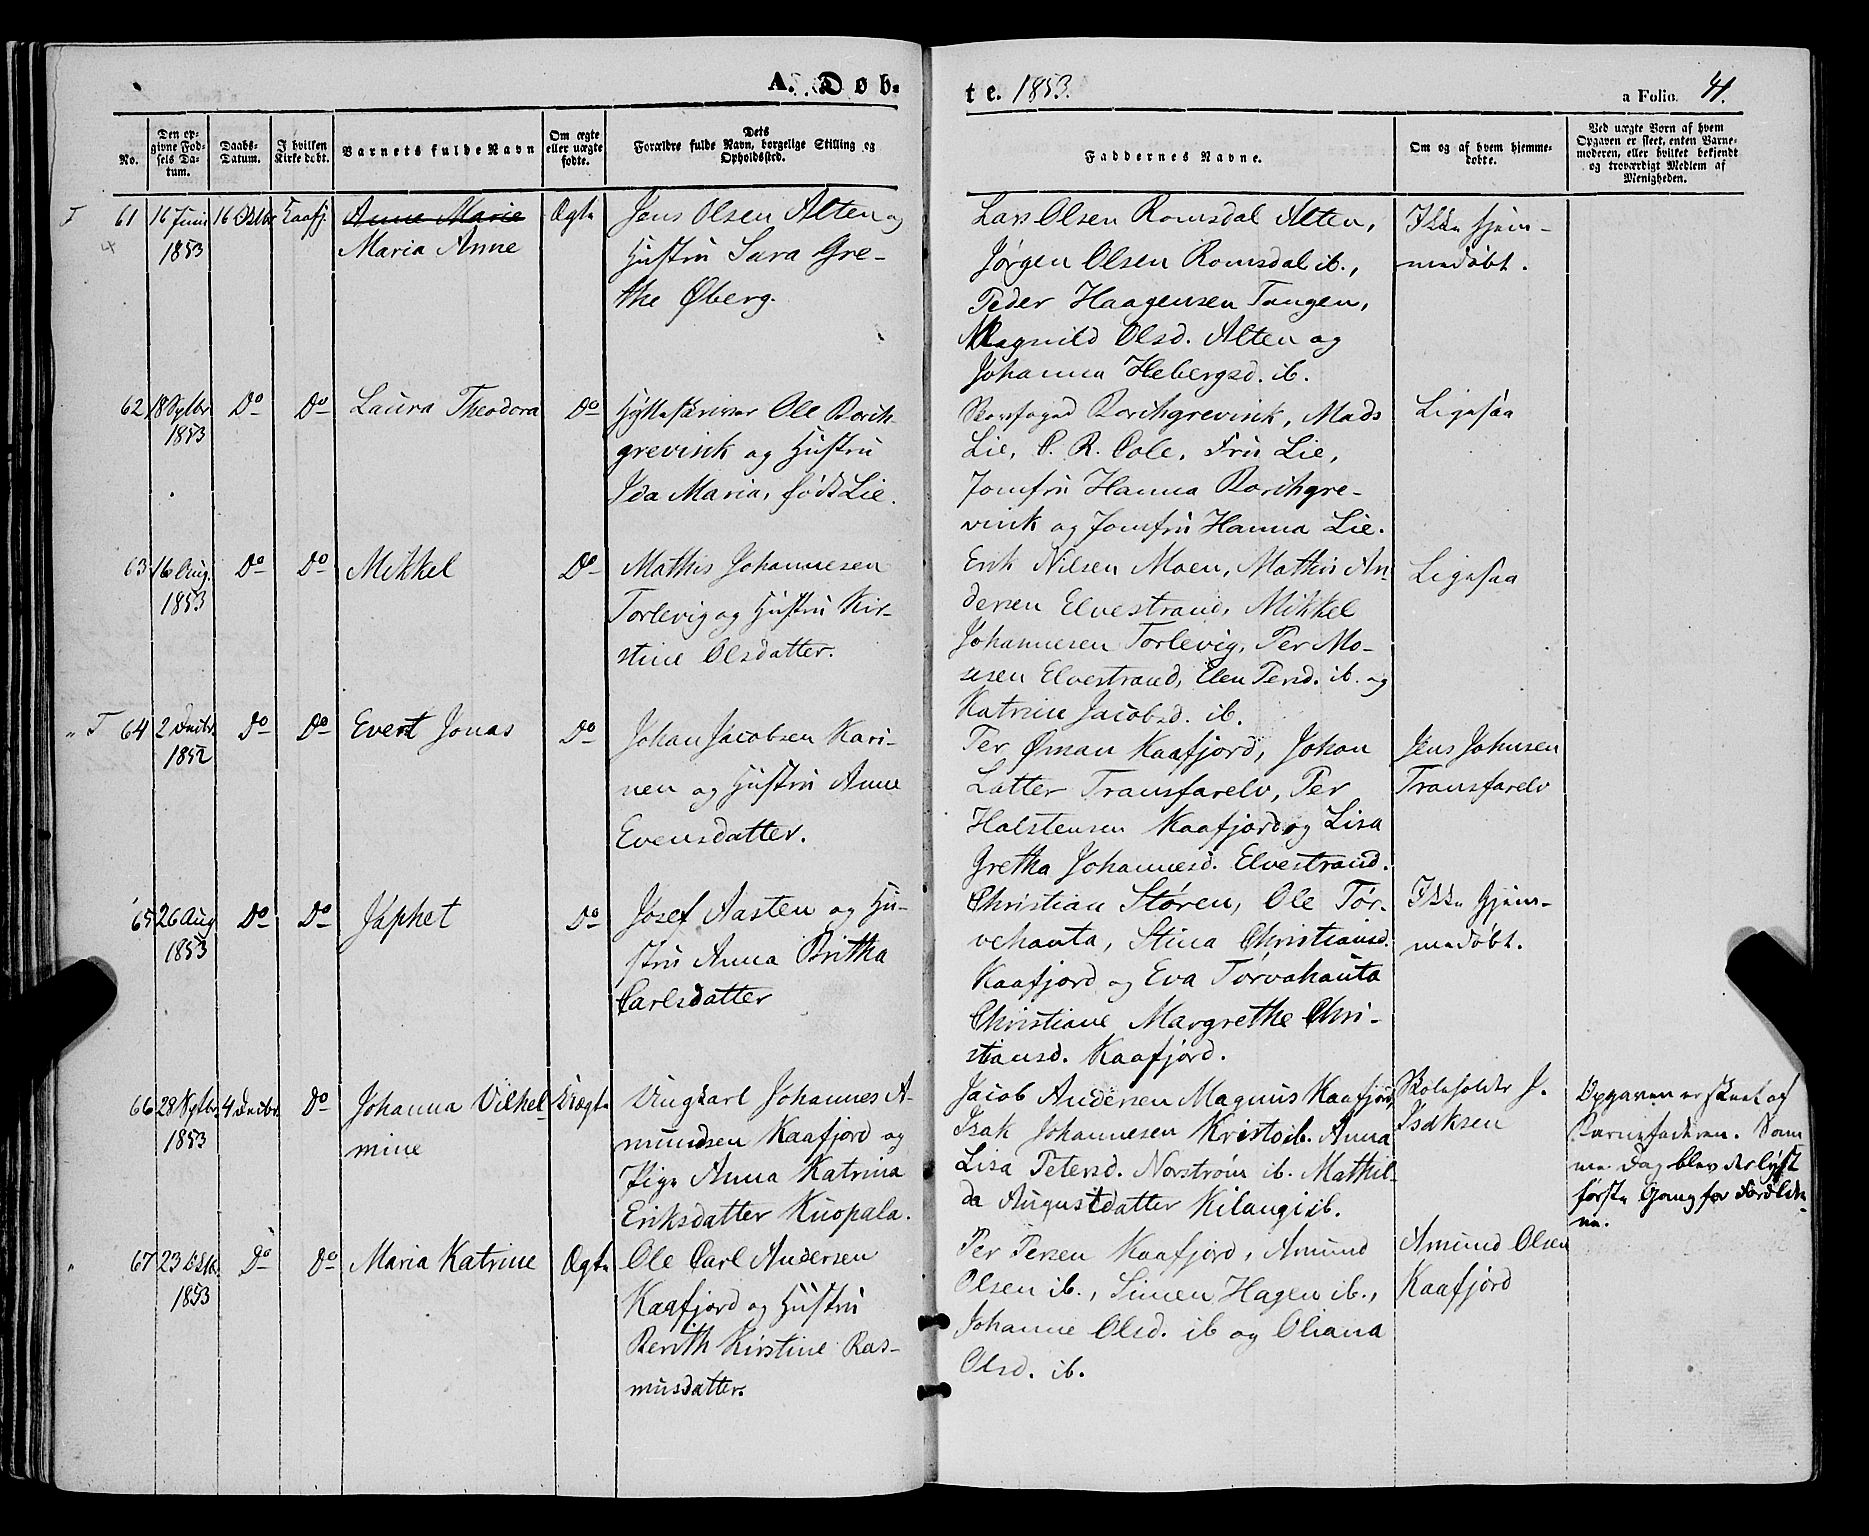 A. Døb-
te. 1853.
a Folio. 41.
No.
Den op-
givne Fød-
sels Da-
tum.
Daabs-
Datum.
I hvilken
Kirke døbt.
Barnets fulde Navn
Om ægte
eller uægte
fødte.
Dets
Forældre fulde Navn, borgelige Stilling og
Opholdssted.
Faddernes Navne.
Om og af hvem hjemme-
døbte.
Ved uægte Børn af hvem
Opgaven er skeet, enten Barne-
moderen, eller hvilket bekjendt
og troværdigt Medlem af
Menigheden.
T 61 16 Juni 16 Oktbr Kaafj. Anne Marie Ægte Jens Olsen Alten og
1853 Maria Anne Hustru Sara Gre-
the Øberg.
Lars Olsen Romsdal Alten,
Jørgen Olsen Romsdal ib.,
Peder Haagensen Tangen,
Magnild Olsd. Alten og
Johanna Hebergsd. ib.
Ikke hjem-
medøbt.
62 18 Sptbr Do Do Laura Theodora Do Hytteskriver Ole Borch-
1853 grevink og Hustru
Ida Maria, født Lie.
Skovfoged Borchgrevink, Mads
Lie, C. R. Cole, Fru Lie,
Jomfru Hanna Borchgre-
vink og Jomfru Hanna Lie.
Ligesaa
63 16 Aug. Do Do Mikkel Do Mathis Johannesen
1853 Torlevig og Hustru Kir-
stine Olsdatter.
Erik Nilsen Moen, Mathis An-
dersen Elvestrand, Mikkel
Johannesen Torlevig, Per Mo-
sesen Elvestrand, Elen Persd. ib. og
Katrine Jacobsd. ib.
Ligesaa
T 64 2 Decbr. Do Do Evert Jonas Do Johan Jacobsen Kari-
1852 nen og Hustru Anne
Evensdatter.
Per Øman Kaafjord, Johan
Latter Transfarelv, Per
Halstensen Kaafjord og Lisa
Gretha Johannesd. Elvestrand.
Jens Johnsen
Transfarelv
65 26 Aug Do Do Japhet Do Josef Aasten og Hu-
1853 stru Anna Britha
Carlsdatter
Christian Støren, Ole Tør-
vehauta, Stina Christiansd.
Kaafjord og Eva Törvahauta
Christiane Margrethe Chri-
stiansd. Kaafjord.
Ikke hjem-
medøbt.
66 28 Sptbr. 4 Decbr. Do Johanna Vilhel- Uægte Ungkarl Johannes A-
1853 mine mundsen Kaafjord og
Pige Anna Katrina
Eriksdatter Kuopala.
Jacob Andersen Magnus Kaafjord,
Isak Johannesen Kristo ib. Anna
Lisa Petersd. Norström ib. Mathil-
da Augustdatter Kilangi ib.
Skoleholder J.
Isaksen
Opgaven er skeet af
Barnefaderen. Sam-
me Dag blev der lyst
første Gang for Forældre-
ne.
67 23 Oktbr. Do Do Maria Katrine Ægte Ole Carl Andersen
1853 Kaafjord og Hustru
Berith Kirstine Ras-
musdatter.
Per Persen Kaafjord, Amund
Olsen ib., Simen Hagen ib.,
Johanne Olsd. ib og Oliana
Olsd. ib.
Amund Olsen
Kaafjord